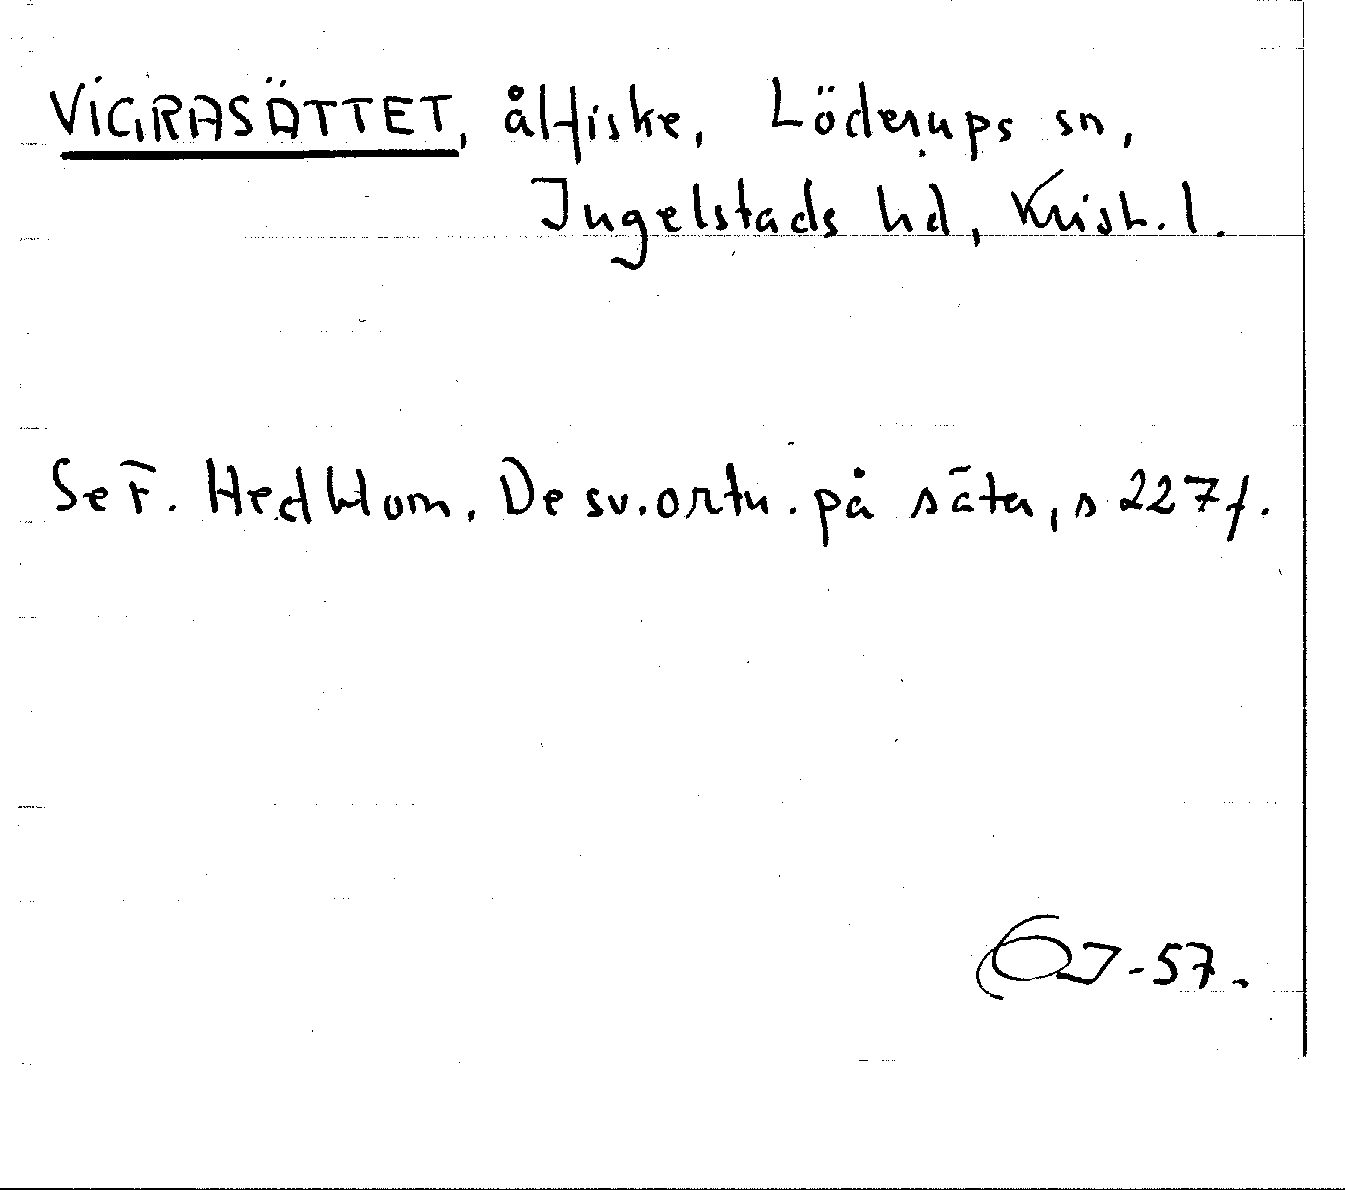 VIGRASÄTTET, ålfiske, Löderups sn,
Ingelstads hd, Krist. l.
Se F. Hedblom. De sv. ortn. på säter, s 227 f.
-57.